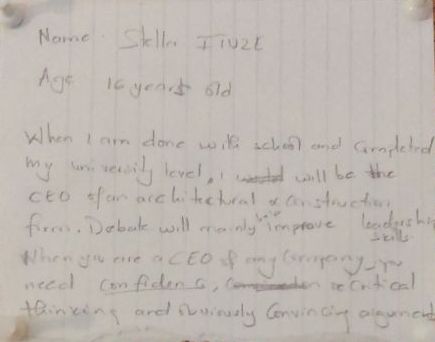 Name Stella
Age 16 years old
When I am done with school and completed
my university level, I will be the
CEO of an architectural & construction
firm. Debate will mainly improve leadership
skills
When you are a CEO of any company, you
need confidence, critical
thinking and obviously convincing argument